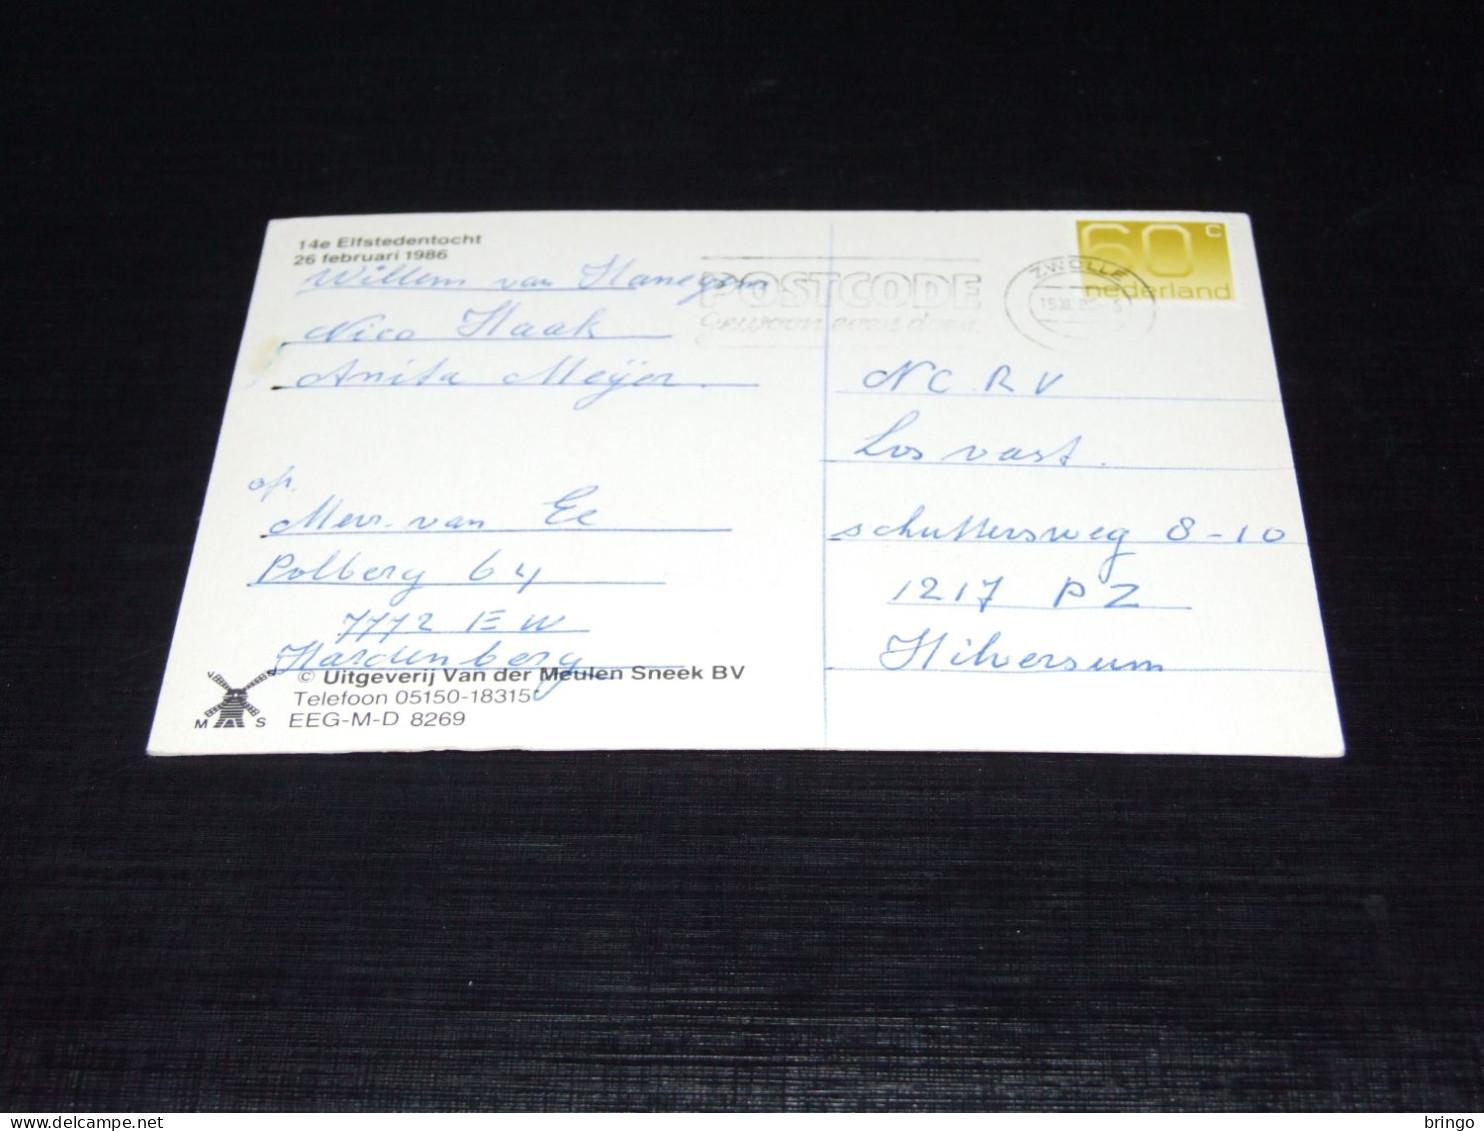 14e Elfstedentocht
26 februari 1986
Willem van Hanegem
Nico Haak
Anita Meijer.
op.
Mevr. van Ee
Polberg 64
7772 EW
Hardenberg
© Uitgeverij Van der Meulen Sneek BV
Telefoon 05150-18315
EEG-M-D 8269
M S
POSTCODE
gewoon even doen
ZWOLLE
60 c
nederland
N C R V
Los vast.
schuttersweg 8-10
1217 PZ
Hilversum
bringo